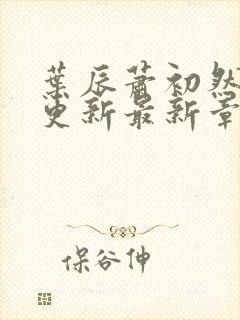 葉辰蕭初然
更新最新章
保谷伸